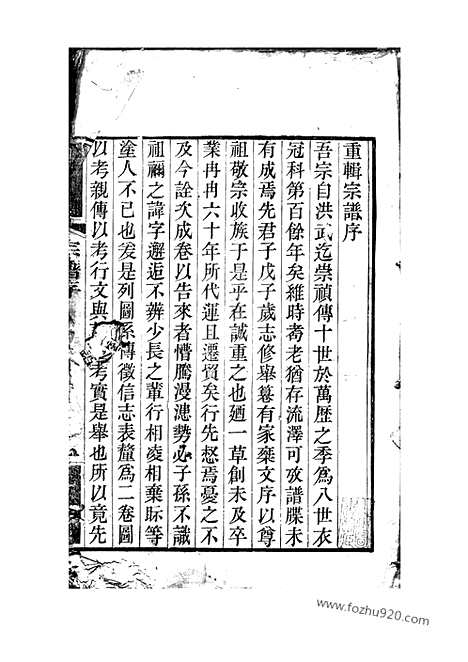 重輯宗譜序
吾宗自洪武迄崇禎傳十世於萬歷之季爲八世衣
冠科第百餘年矣維時耇老猶存流澤可攷譜牒未
有成焉先君子戊子歲志修舉纂有家槀文序以尊
祖敬宗收族于是乎在誠重之也廼一草創未及卒
業冉冉六十年所代運且遷貿矣行先惄焉憂之不
及今詮次成卷以告來者懵騰漫漶勢必子孫不識
祖禰之諱字邂逅不辨少長之輩行相凌相棄眎等
塗人不已也爰是列圖系傳徵信志表釐爲二卷圖
以考親傳以考行文與 考實是舉也所以竟先
宗譜序
www.fozhu920.com